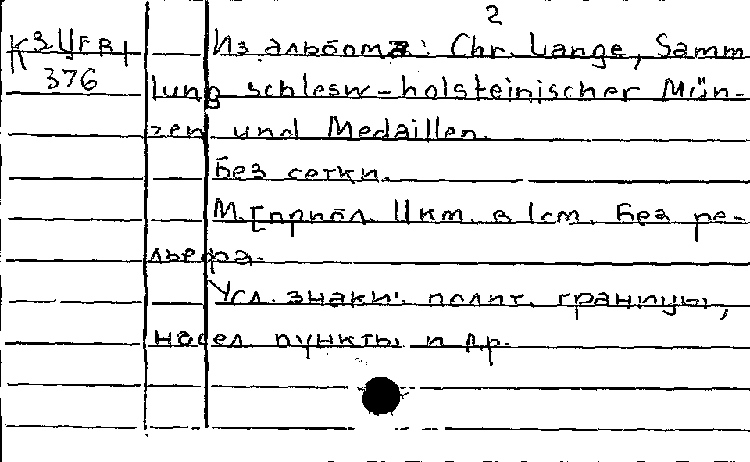 2
К 3 Ц ГГВ 1
376
Из альбома: Chr. Lange, Samm
lung schlesw-holsteinischer Mün-
zen und Medaillen.
Без сетки.
М.[прибл. 11 км. в 1 cm. Без ре-
льефа.
Усл. знаки: полит. границы,
насел. пункты и др.